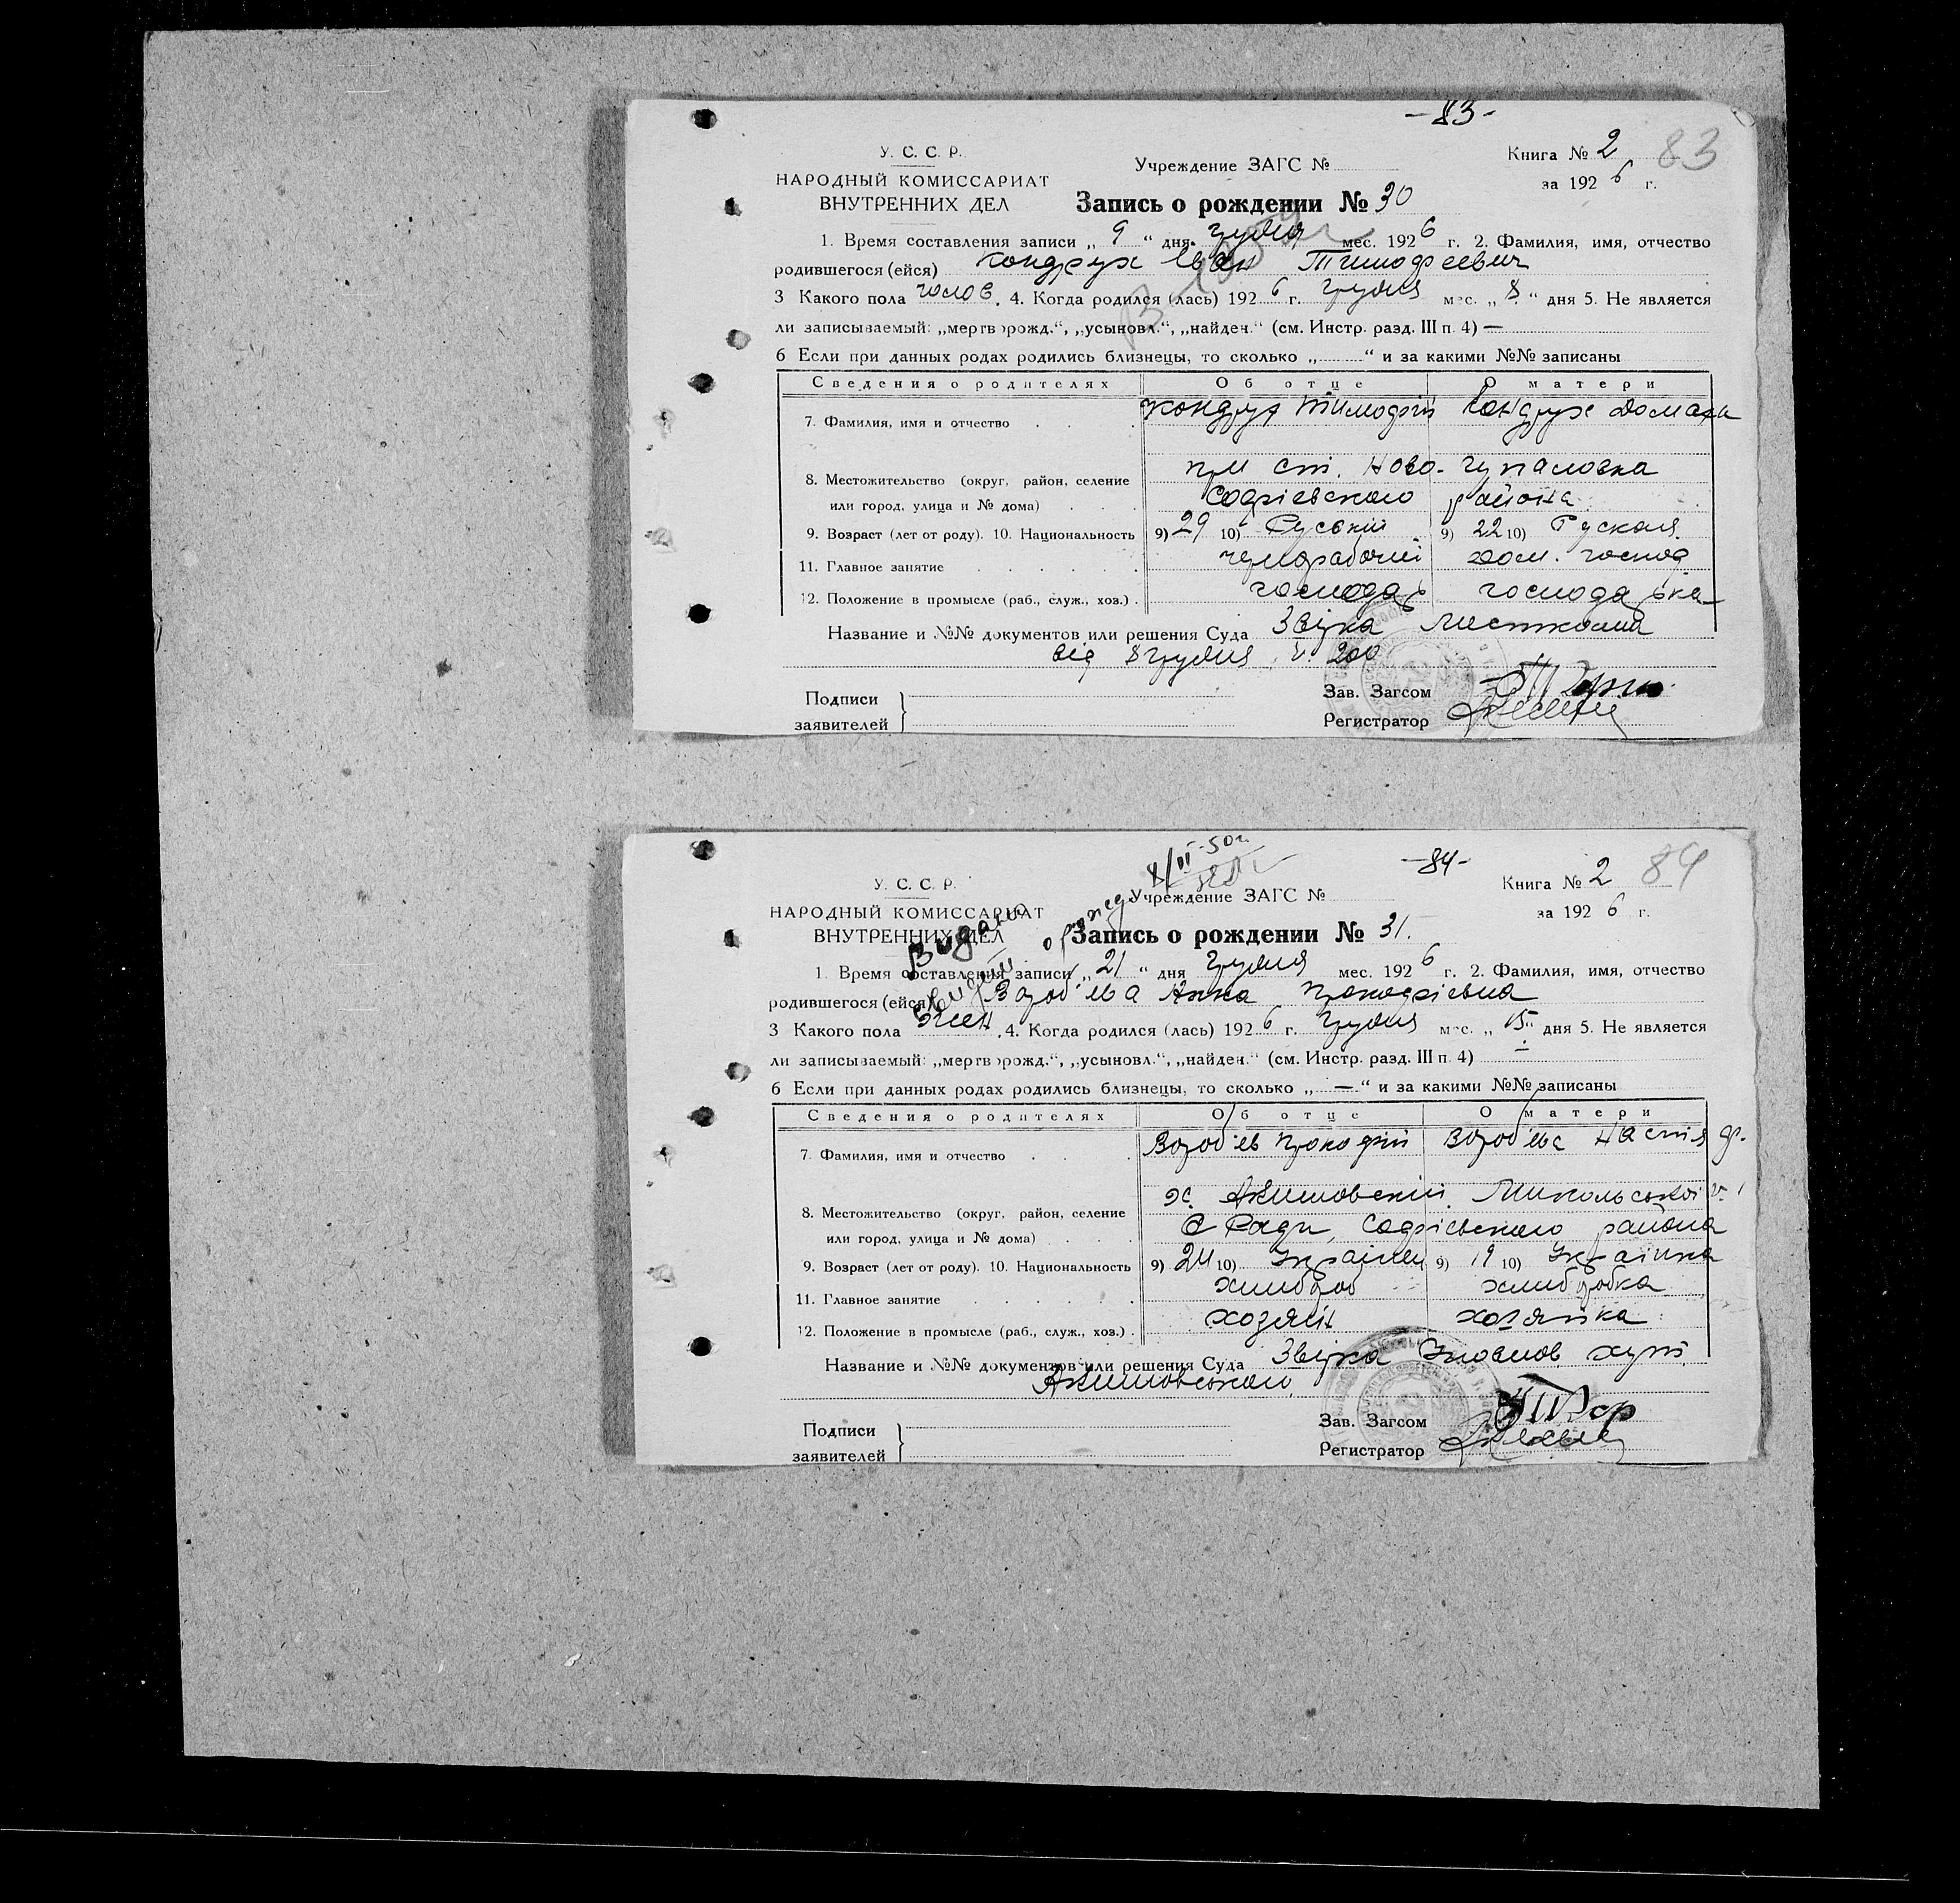 -83-
У. С. С. Р.
Учреждение ЗАГС №
Книга № 2 83
НАРОДНЫЙ КОМИССАРИАТ
за 1926 г.
ВНУТРЕННИХ ДЕЛ
Запись о рождении № 30
1. Время составления записи „ 9 “ дня грудня мес. 1926 г. 2. Фамилия, имя, отчество
родившегося (ейся) Кондрух Іван Тимофеевич
3 Какого пола чолов. 4. Когда родился (лась) 1926 г. грудня мес. „ 8 “ дня 5. Не является
ли записываемый: „мертворожд.“, „усыновл.“, „найден.“ (см. Инстр. разд. III п. 4) —
6 Если при данных родах родились близнецы, то сколько „ “ и за какими №№ записаны
Сведения о родителях Об отце О матери
7. Фамилия, имя и отчество Кондрух Тимофій Кондрух Домаха
8. Местожительство (округ, район, селение при ст. Ново-гупаловка
или город, улица и № дома) Софіевского района
9. Возраст (лет от роду). 10. Национальность 9) 29 10) Руський 9) 22 10) Руская
11. Главное занятие чорнорабочий дом. господ
12. Положение в промысле (раб., служ., хоз.) господарь господарка
Название и №№ документов или решения Суда Звірка Месткома
від 8 грудня ч. 200
Подписи
заявителей
Зав. Загсом
Регистратор
-84-
У. С. С. Р.
Учреждение ЗАГС №
Книга № 2 84
НАРОДНЫЙ КОМИССАРИАТ
за 1926 г.
ВНУТРЕННИХ ДЕЛ
Запись о рождении № 31.
Видано о рожд
1. Время составления записи „ 21 “ дня грудня мес. 1926 г. 2. Фамилия, имя, отчество
родившегося (ейся) Вороб'ева Анна Прокофіевна
3 Какого пола жен. 4. Когда родился (лась) 1926 г. грудня мес. „ 15 “ дня 5. Не является
ли записываемый: „мертворожд.“, „усыновл.“, „найден.“ (см. Инстр. разд. III п. 4) —
6 Если при данных родах родились близнецы, то сколько „ — “ и за какими №№ записаны
Сведения о родителях Об отце О матери
7. Фамилия, имя и отчество Вороб'ев Прокофій Вороб'ева Настія Ф.
8. Местожительство (округ, район, селение х. Акимовский Микольської
или город, улица и № дома) С Ради, Софіевского района
9. Возраст (лет от роду). 10. Национальность 9) 24 10) Українец 9) 19 10) Українка
11. Главное занятие хлибороб хлиборобка
12. Положение в промысле (раб., служ., хоз.) хозяїн хозяйка
Название и №№ документов или решения Суда Звірка Уповнов хут.
Акимовського
Подписи
заявителей
Зав. Загсом
Регистратор